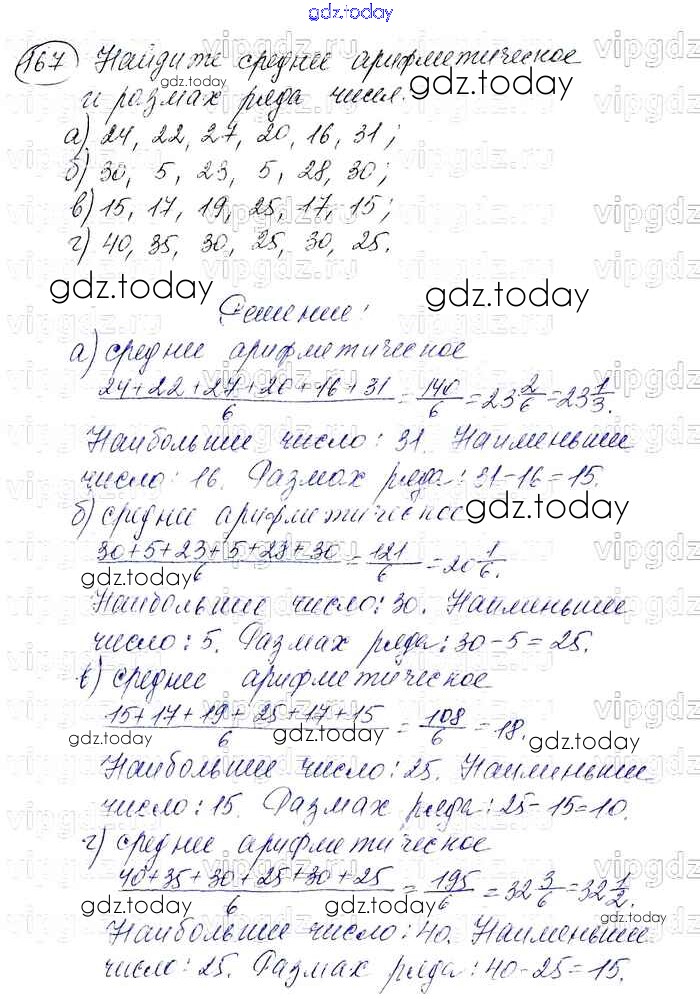 gdz.today
167 Найдите среднее арифметическое
и размах ряда чисел.
а) 24, 22, 27, 20, 16, 31;
б) 30, 5, 23, 5, 28, 30;
в) 15, 17, 19, 25, 17, 15;
г) 40, 35, 30, 25, 30, 25.
Решение:
а) среднее арифметическое
24+22+27+20+16+31/6 = 140/6 = 23 2/6 = 23 1/3.
Наибольшее число: 31. Наименьшее
число: 16. Размах ряда: 31-16=15.
б) среднее арифметическое
30+5+23+5+28+30/6 = 121/6 = 20 1/6.
Наибольшее число: 30. Наименьшее
число: 5. Размах ряда: 30-5=25.
в) среднее арифметическое
15+17+19+25+17+15/6 = 108/6 = 18.
Наибольшее число: 25. Наименьшее
число: 15. Размах ряда: 25-15=10.
г) среднее арифметическое
40+35+30+25+30+25/6 = 195/6 = 32 3/6 = 32 1/2.
Наибольшее число: 40. Наименьшее
число: 25. Размах ряда: 40-25=15.